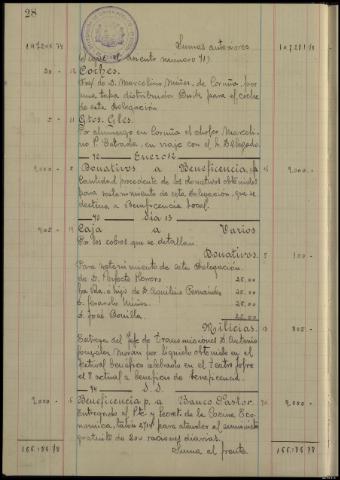 28
107206 74 Sumas anteriores 107281 18
(Sigue el asiento número 71)
Coches.
Fra/ de D. Marcelino Muñoz, de Coruña, por
una tapa distribución Buick para el coche
de esta Delegación
5 - 11 Gtos. Gles.
Por almuerzo en Coruña el chofer, Marceli-
no P. Estrada, en viaje con el Sr. Delegado
72 Enero 12
2,000 - Donativos a Beneficencia, p/ 2,000 -
Cantidad procedente de los donativos obtenidos
para sostenimiento de esta Delegación, que se
destina a Beneficencia Local.
73 Día 13
905 - Caja a Varios
Por los cobros que se detallan.
Donativos. 100 -
Para sostenimiento de esta Delegación.
de D. Perfecto 25,00
de Aquilino Fernández 25,00
D. Gerardo 25,00
D. José Bonilla 25,00
Milicias. 805 -
Entrega del Jefe de Transmisiones D. Antonio
González Morán por líquido obtenido en el
festival benéfico celebrado en el Teatro Jofre
el 8 actual a beneficio de
74 d. d.
2,000 - Beneficencia p, a Banco Pastor. 2,000 -
Entregado al Pte y Secret. de la Cocina Eco-
nómica, talón para atender al suministro
gratuito de 200 raciones diarias.
Suma al frente